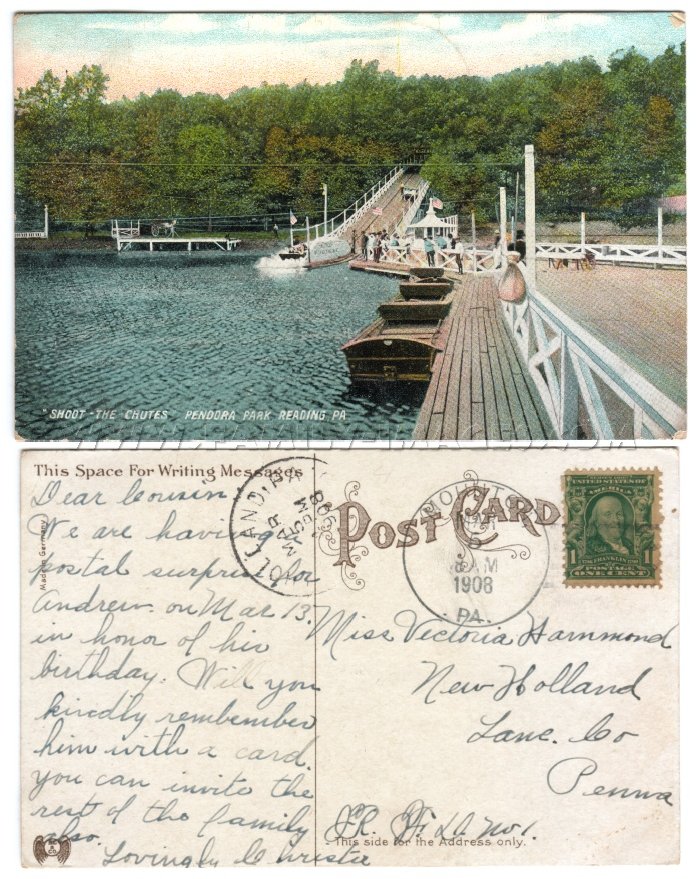 "SHOOT-THE CHUTES" PENDORA PARK READING PA
This Space For Writing Messages
Dear Cousin
We are having
postal surprise for
Andrew on Mar 13.
in honor of his
birthday. Will you
kindly remember
him with a card.
you can invite the
rest of the family
also.
Lovingly Christie
Made in Germany
POST CARD
AM
1908
PA.
UNITED STATES OF
AMERICA
1
FRANKLIN
POSTAGE
ONE CENT
Miss Victoria Hammond
New Holland
Lanc. Co
Penna
R. F. D. No 1.
This side for the Address only.